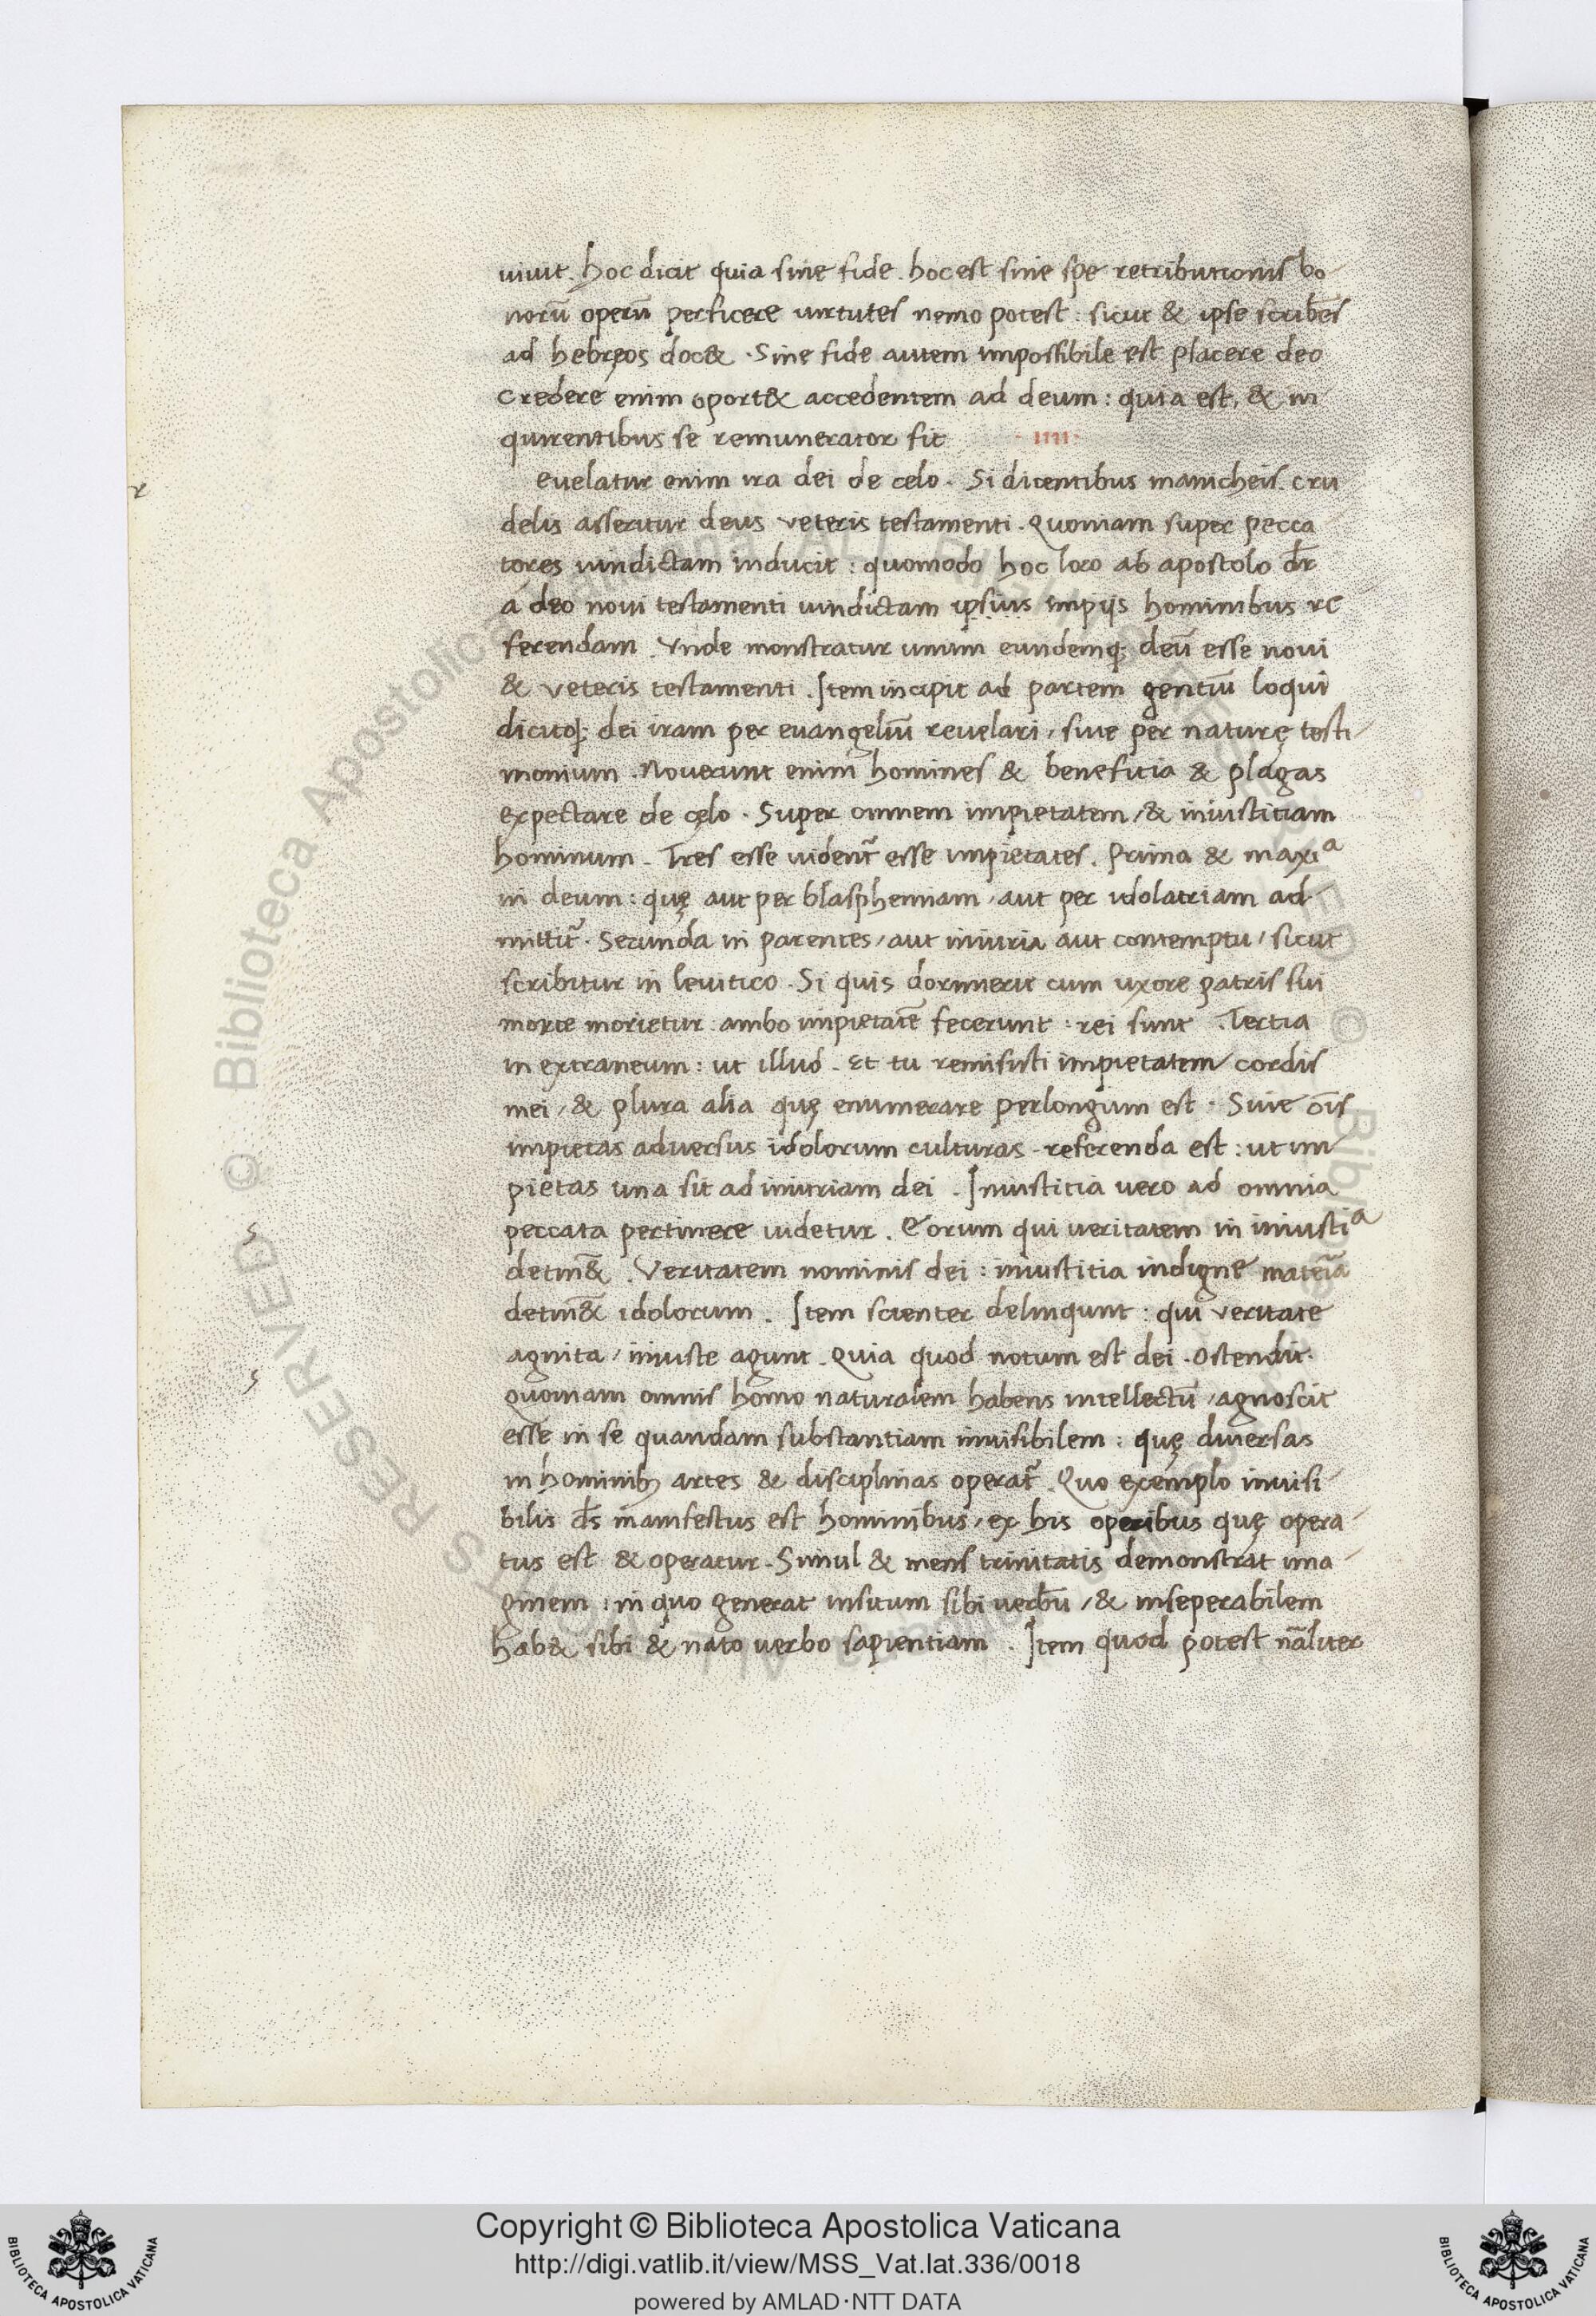 uiuit. hoc dicit quia sine fide. hoc est sine spe retributionis bo
norū operū perficere uirtutes nemo potest: sicut & ipse scribēs
ad hebręos doc&. Sine fide autem impossibile est placere deo
Credere enim oport& accedentem ad deum: quia est, & in
quirentibus se remunerator sit ·IIII·
r
euelatur enim ira dei de celo. Si dicentibus manicheis. cru
delis asseritur deus veteris testamenti. Quoniam super pecca
tores uindictam inducit: quomodo hoc loco ab apostolo dr̄
a deo noui testamenti uindictam ipsius impijs hominibus re
ferendam. Vnde monstratur unum eundemq; deū esse noui
& veteris testamenti. Item incipit ad partem gentiū loqui
dicitq; dei iram per euangeliū reuelari, siue per naturę testi
monium. Nouerunt enim homines & beneficia & plagas
expectare de cęlo. Super omnem impietatem, & iniusticiam
hominum. Tres esse uident̄ esse impietates. Prima & maxiᵃ
in deum: quę aut per blasphemiam, aut per idolatriam ad
mittit̄. Secunda in parentes, aut iniuria aut contemptu, sicut
scribitur in leuitico. Si quis dormierit cum uxore patris sui
morte morietur. ambo impietatē fecerunt: rei sunt. Tertia
in extraneum: ut illud. Et tu remisisti impietatem cordis
mei, & plura alia quę enumerare perlongum est. Siue ōis
impietas aduersus idolorum culturas referenda est: ut im
pietas una sit ad iniuriam dei. Iniusticia vero ad omnia
s
peccata pertinere uidetur. Eorum qui ueritatem in iniustiᵃ
detin̄&. Veritatem nominis dei: iniustitia indigne materiā
detin̄& idolorum. Item scienter delinqunt: qui veritate
s
agnita, iniuste agunt. Quia quod notum est dei. Ostendit.
quoniam omnis homo naturalem habens intellectū, agnoscit
esse in se quandam substantiam inuisibilem: quę diuersas
in hominib; artes & disciplinas operat̄. Quo exemplo inuisi
bilis ds̄ manifestus est hominibus, ex his operibus quę opera
tus est & operatur. Simul & mens trinitatis demonstrat ima
ginem: in quo generat insitum sibi uerbū, & inseperabilem
hab& sibi & nato uerbo sapientiam. Item quod potest nāliter
Copyright © Biblioteca Apostolica Vaticana
http://digi.vatlib.it/view/MSS_Vat.lat.336/0018
powered by AMLAD·NTT DATA
BIBLIOTECA APOSTOLICA VATICANA
BIBLIOTECA APOSTOLICA VATICANA